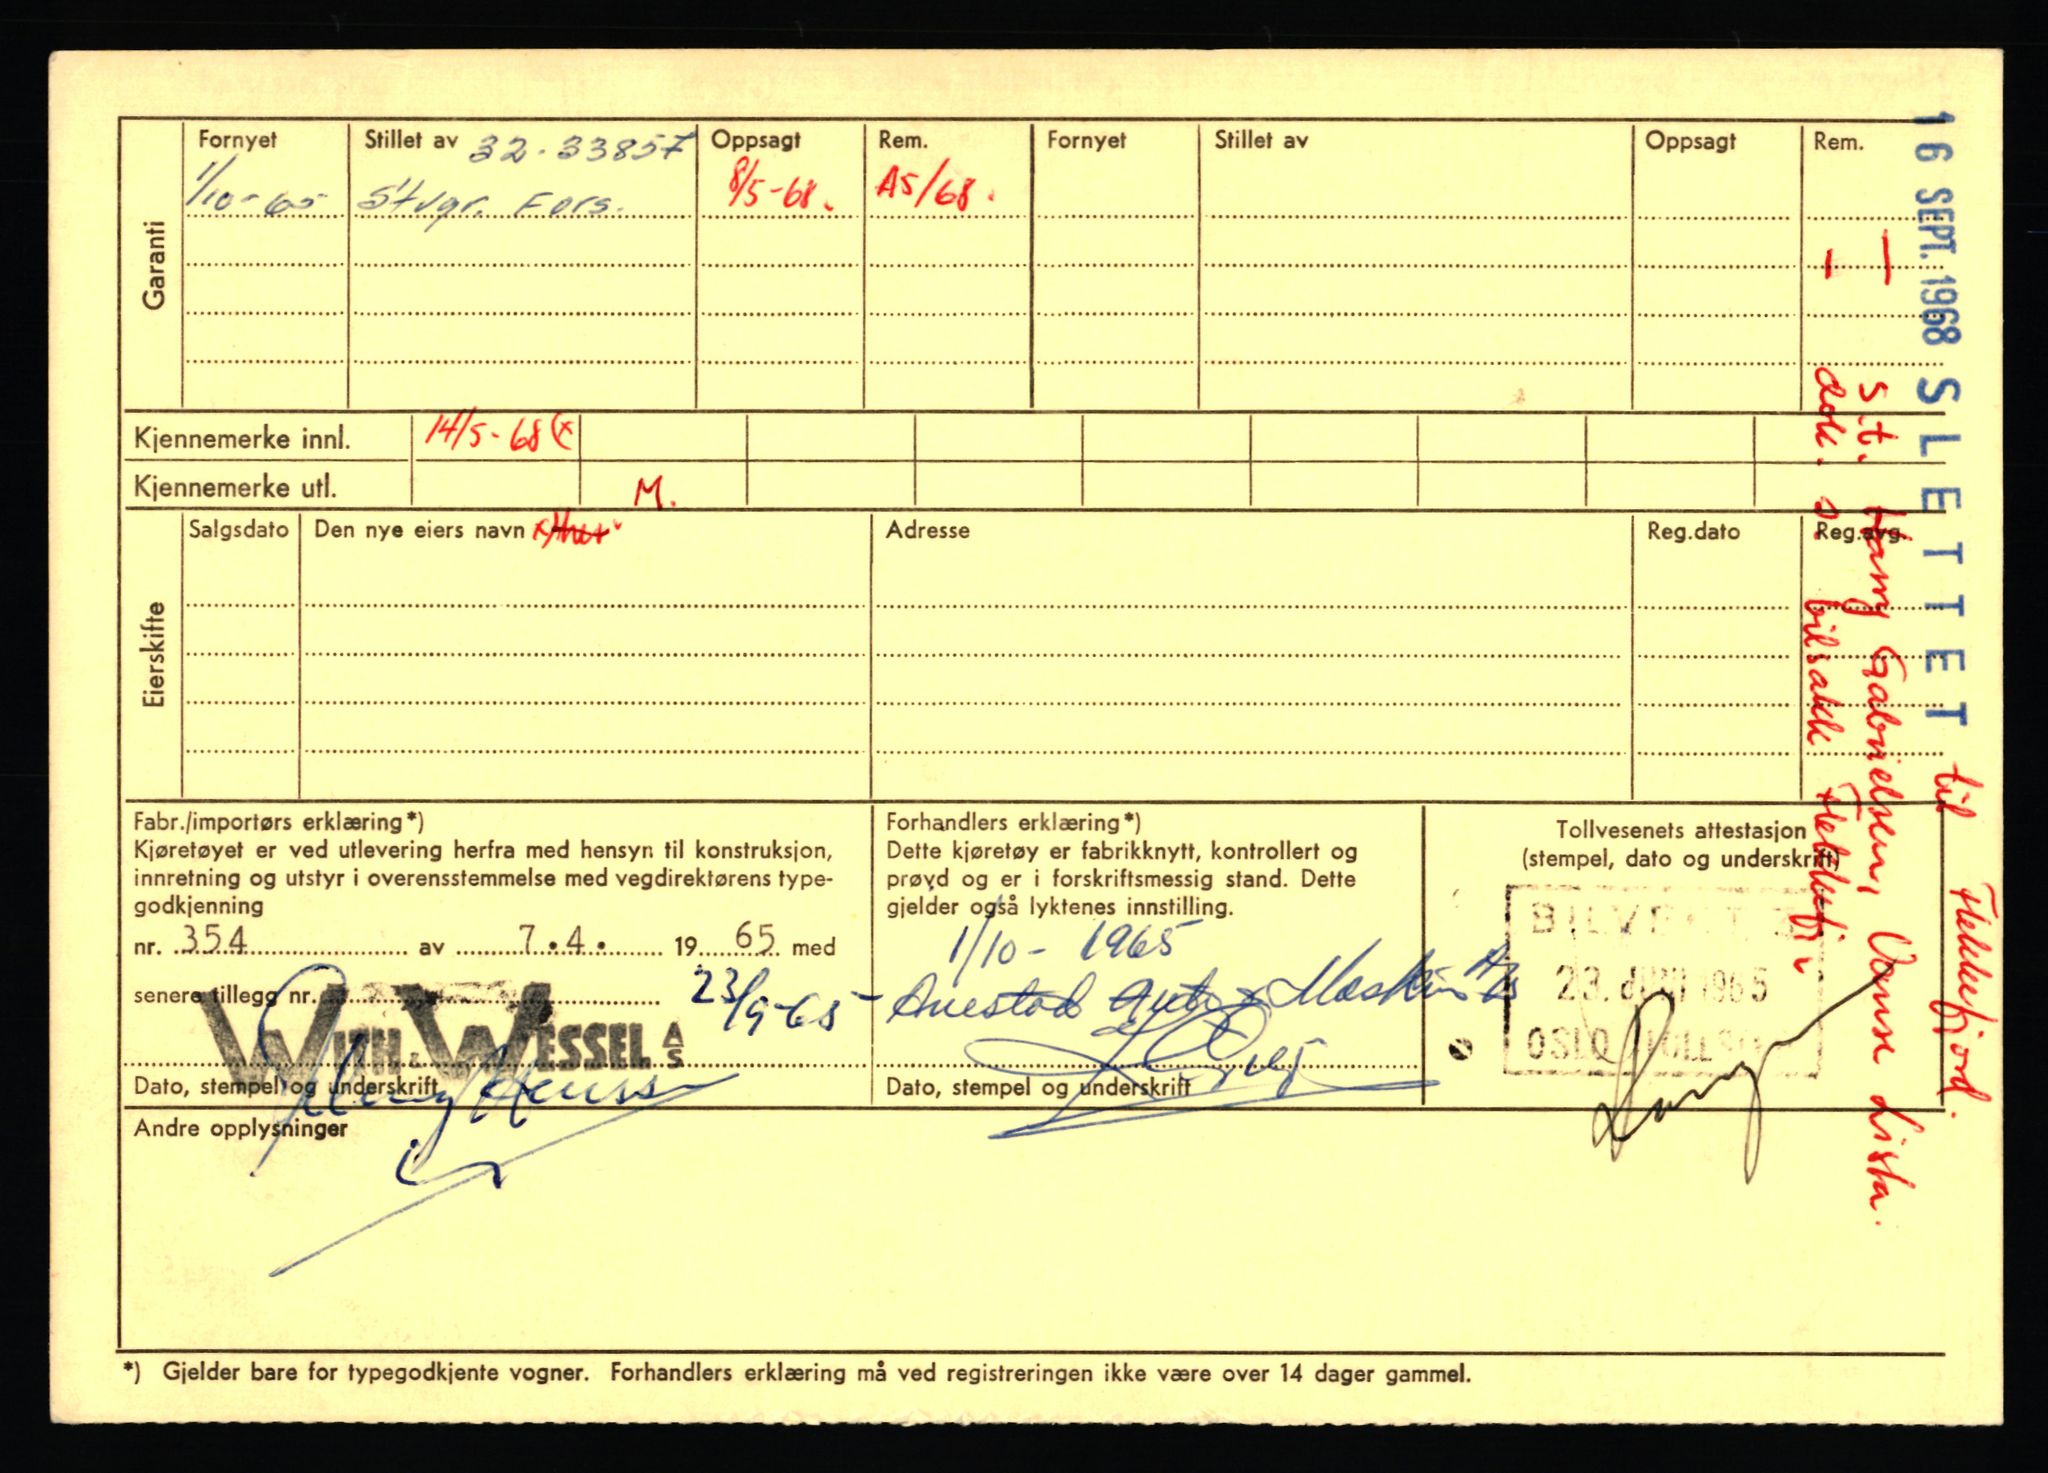 Garanti
Fornyet Stillet av 32-33857 Oppsagt Rem. Fornyet Stillet av Oppsagt Rem.
1/10-65 Stvgr. Fors. 8/5-68. A5/68.
Kjennemerke innl. 14/5-68 (x
Kjennemerke utl. M.
Eierskifte
Salgsdato Den nye eiers navn Adresse Reg.dato Reg.avg.
Fabr./importørs erklæring*)
Kjøretøyet er ved utlevering herfra med hensyn til konstruksjon,
innretning og utstyr i overensstemmelse med vegdirektørens type-
godkjenning
nr. 354 av 7.4. 19 65 med
senere tillegg nr. 23/9-65
WITH & WESSEL A/S
Dato, stempel og underskrift
Forhandlers erklæring*)
Dette kjøretøy er fabrikknytt, kontrollert og
prøvd og er i forskriftsmessig stand. Dette
gjelder også lyktenes innstilling.
1/10-1965
Auestad Auto & Maskin A/S
Dato, stempel og underskrift
Tollvesenets attestasjon
(stempel, dato og underskrift)
23. JUNI 1965
OSLO TOLLSTED
Andre opplysninger
*) Gjelder bare for typegodkjente vogner. Forhandlers erklæring må ved registreringen ikke være over 14 dager gammel.
16 SEPT. 1968 SLETTET
til Flekkefjord.
s.t. Harry Gabrielsen, Vanse Lista.
dok. s. bilsakk. Flekkefj.